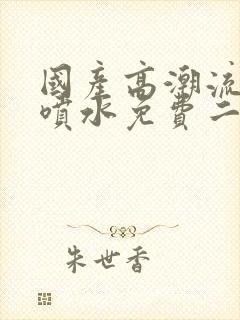 國產高潮流
噴水免費二
朱世香